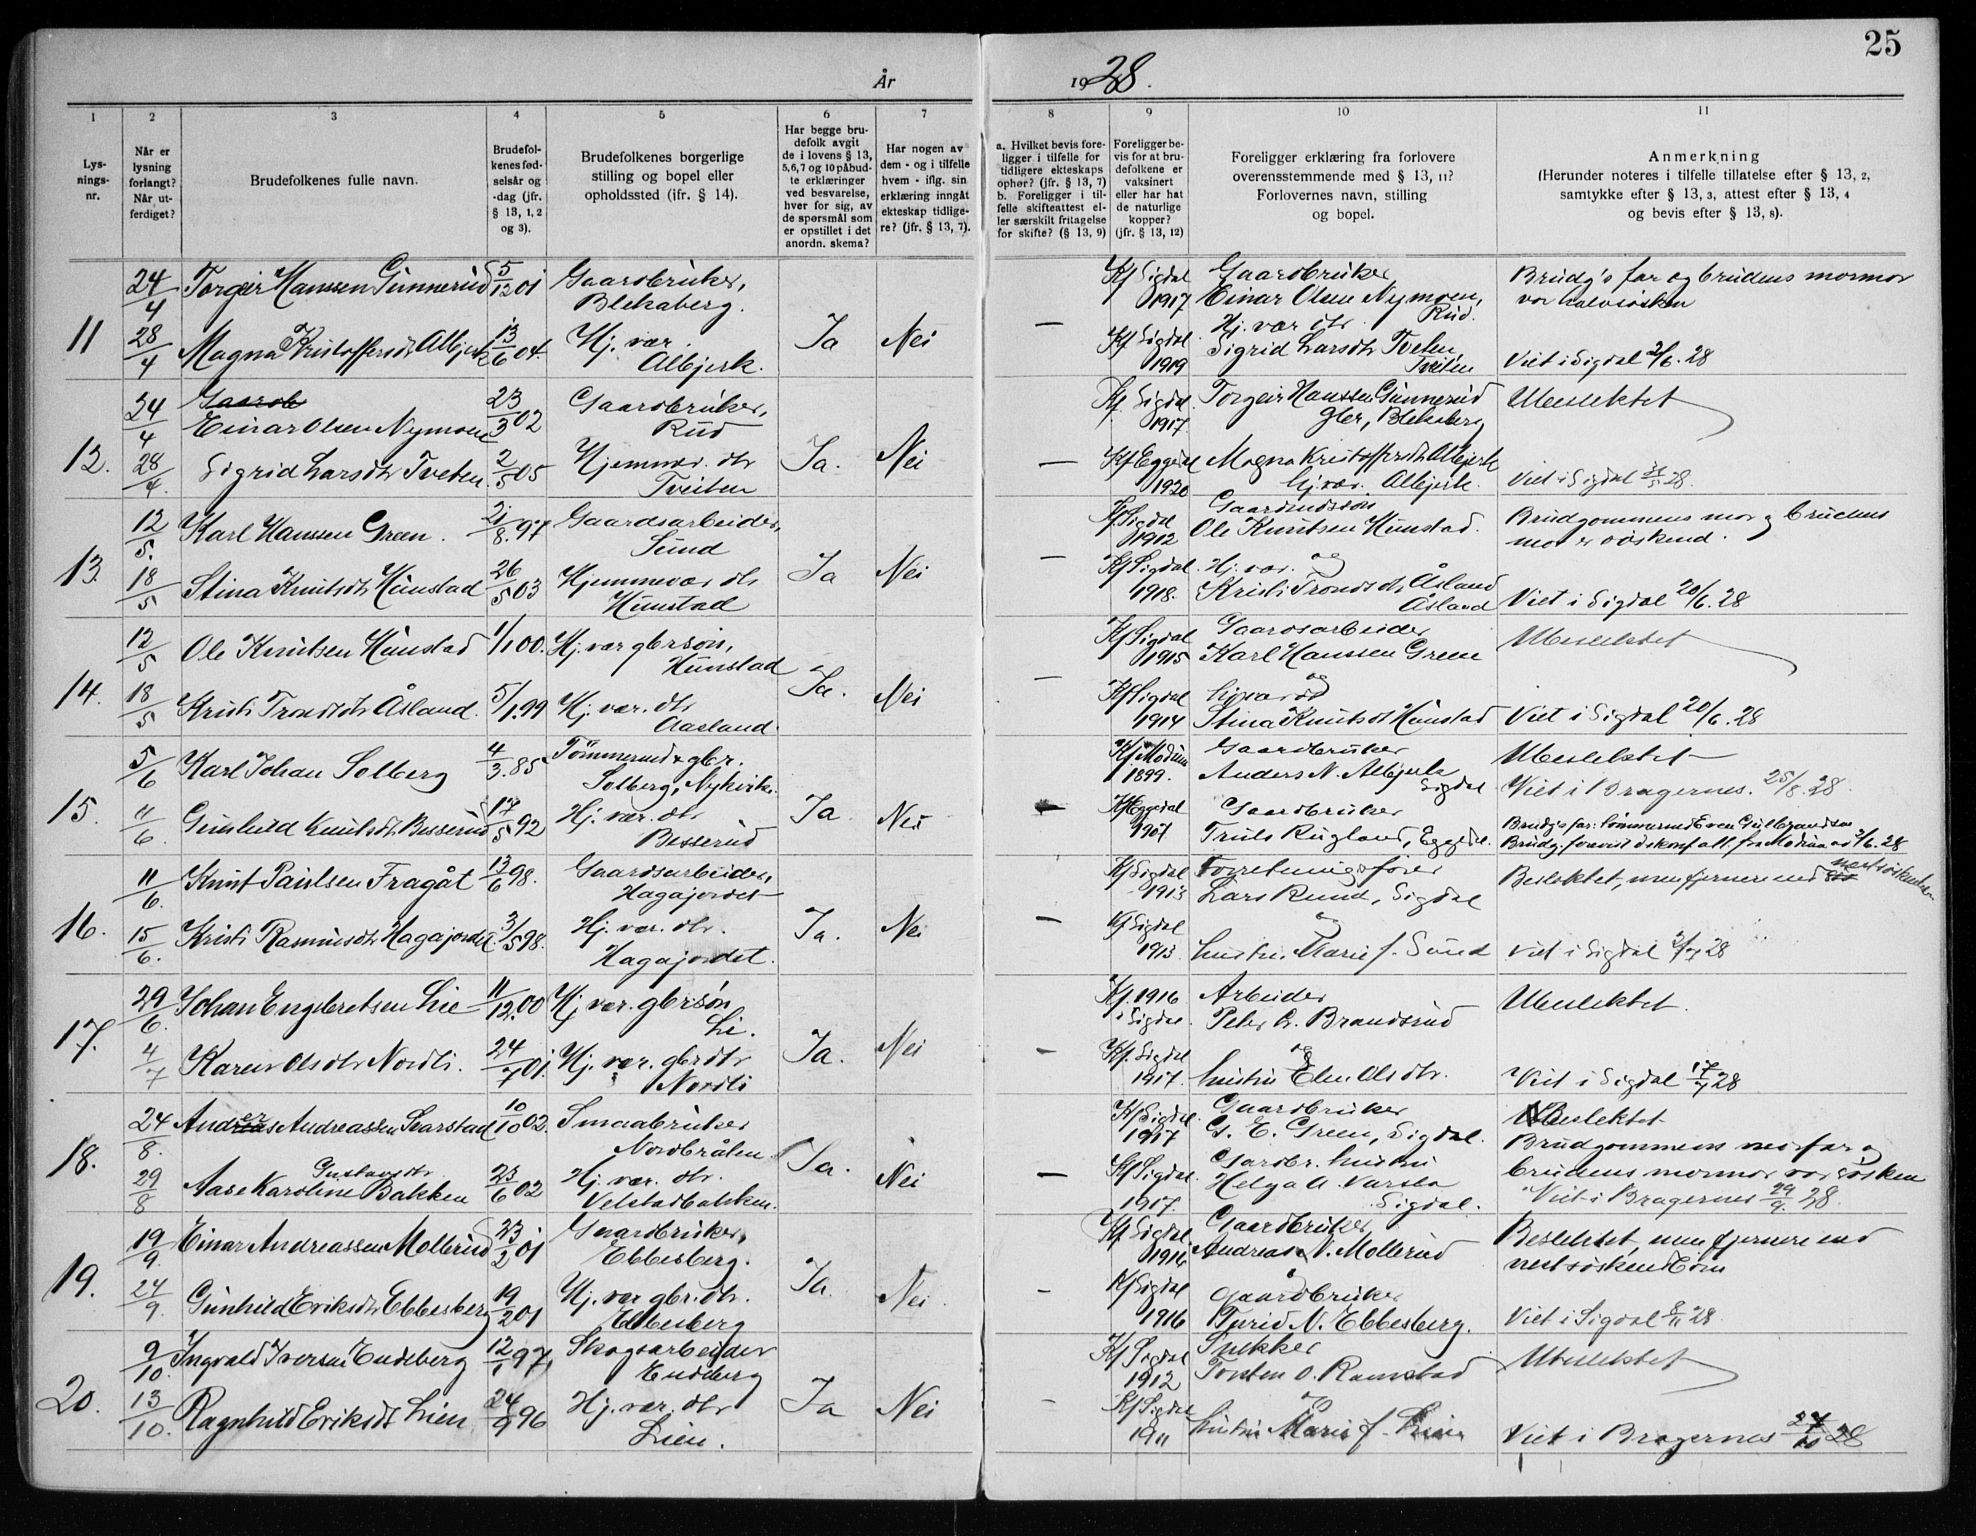 25
År
1928.
1
2
3
4
5
6
7
8
9
10
11
Lys-
nings-
nr.
Når er
lysning
forlangt?
Når ut-
ferdiget?
Brudefolkenes fulle navn.
Brudefol-
kenes fød-
selsår og
-dag (jfr.
§ 13, 1, 2
og 3).
Brudefolkenes borgerlige
stilling og bopel eller
opholdssted (ifr. § 14).
Har begge bru-
defolk avgit
de i lovens § 13,
5, 6, 7 og 10 påbud-
te erklæringer
ved besvarelse,
hver for sig, av
de spørsmål som
er opstillet i det
anordn. skema?
Har nogen av
dem - og i tilfelle
hvem - iflg. sin
erklæring inngått
ekteskap tidlige-
re? (jfr. § 13, 7).
a. Hvilket bevis fore-
ligger i tilfelle for
tidligere ekteskaps
ophør? (jfr. § 13, 7)
b. Foreligger i til-
felle skifteattest el-
ler særskilt fritagelse
for skifte? (§ 13, 9)
Foreligger be-
vis for at bru-
defolkene er
vaksinert
eller har hat
de naturlige
kopper?
(jfr. § 13, 12)
Foreligger erklæring fra forlovere
overensstemmende med § 13, 11?
Forlovernes navn, stilling
og bopel.
Anmerkning
(Herunder noteres i tilfelle tillatelse efter § 13, 2,
samtykke efter § 13, 3, attest efter § 13, 4
og bevis efter § 13, 8).
11
24/4 Torgeir Hanssen Gunnerud 5/12 01 Gaardbruker,
Blekaberg.
28/4 Magna Kristoffersdtr Albjerk 13/6 04. Hj. vær.
Albjerk.
Ja Nei —
Kf Sigdal
1917
Gaardbruker
Einar Olsen Nymoen,
Rud.
Kf Sigdal
1919
Hj. vær dtr
Sigrid Larsdtr Tveten
Tveiten
Brudg's far og brudens mormor
var halvsøsken
Viet i Sigdal 2/6. 28
12.
24/4 Gaardb
Einar Olsen Nymoen 23/3 02 Gaardbruker,
Rud
28/4 Sigrid Larsdtr Tveten 2/5 05 Hjemmev. dtr
Tveiten
Ja. Nei —
Kf. Sigdal
1917
Torgeir Hanssen Gunnerud
gbr, Blekaberg
Kf Eggedal
1920
Magna Kristoffersdtr Albjerk
hj. vær. Albjerk.
Ubeslektet
Viet i Sigdal 28.
13.
12/5. Karl Hanssen Green. 21/8. 97 Gaardsarbeider,
Sund
18/5 Stina Knutsdtr Hunstad 26/5 03 Hjemmevær dtr
Hunstad
Ja Nei —
Kf Sigdal
1912
Gaardmdssøn
Ole Knutsen Hunstad.
og
Kf Sigdal.
1918.
Hj. vær.
Kristi Trondsdtr Åsland
Åsland
Brudgommens mor og brudens
mor er søskend.
Viet i Sigdal 20/6. 28
14.
12/5 Ole Knutsen Hunstad 1/1 00. Hj. vær gbrsøn,
Hunstad
18/5 Kristi Trondsdtr Åsland. 5/1. 99 Hj. vær. dtr
Aasland.
Ja. Nei —
Kf Sigdal
1915
Gaardsarbeider
Karl Hanssen Green
og
Kf Sigdal
1914
hjvær dtr
Stina Knutsdtr Hunstad
Ubeslektet
Viet i Sigdal 20/6. 28
15.
5/6 Karl Johan Solberg 4/3. 85 Tømmermd & gbr.
Solberg, Nykirke.
11/6. Gunhild Knutsdtr Besserud 17/5 92 Hj. vær. dtr
Besserud
Ja. Nei —
Kf Modum
1899.
Gaardbruker
Anders N. Albjerk
Sigdal
Kf Eggedal
1907
Gaardbruker
Truls Rugland, Eggedal.
Ubeslektet
Viet i Bragernes. 25/8. 28.
Brudg's far: tømmermd Even Gulbrandsen
16.
11/6. Knut Paulsen Fragåt 13/6 98. Gaardsarbeider,
Hagajordet
15/6. Kristi Rasmusdtr Hagajordet 3/5 98. Hj. vær. dtr.
Hagajordet.
Ja. Nei —
Kf Sigdal
1913
Forretningsfører
Lars Rund, Sigdal
og
Kf Sigdal
1913
hustru Marie f. Sund
Beslektet, men fjernere end næstsøskenbarn
Viet i Sigdal 2/7 28
17.
29/6. Johan Engebretsen Lie 11/12. 00 Hj. vær. gbrsøn
Li.
4/7 Karen Olsdtr Nordli. 24/7 01. Hj. vær. gbrdtr
Nordli
Ja. Nei —
Kf. 1916
i Sigdal.
Arbeider
Peter G. Brandsrud
og
Kf. Sigdal
1917.
hustru Elen Olsdtr.
Ubeslektet.
Viet i Sigdal 17/7 28
18.
24/8. Anders Andreassen Skarstad 10/10 02. Smaabruker
Nordbråten.
29/8 Aase Karoline Gustavsdtr Bakken 23/6 02 Hj. vær. dtr.
Velstadbakken.
Ja. Nei —
Kf Sigdal.
1917
Gaardbruker
G. E. Green, Sigdal.
Kf Sigdal.
1917.
Gardbr. hustru
Helga A. Varsla
Sigdal.
Beslektet
Brudgommens morfar og
brudens mormor var søsken
Viet i Bragernes 29/9. 28.
19.
19/9. Einar Andreassen Mollerud 23/2 01 Gaardbruker,
Ebbesberg.
24/9. Gunhild Eriksdtr Ebbesberg 19/2 01 Hj. vær gbr. dtr.
Ebbesberg
Ja. Nei. —
Kf Sigdal
1916
Gaardbruker
Andreas N. Mollerud
Kf Sigdal
1916
Gaardbruker
Turid N. Ebbesberg.
Beslektet men fjernere end
nestsøskendbørn
Viet i Sigdal 8/11 28.
20.
9/10. Ingvald Iversen Endeberg 12/1 97, Skogsarbeider
Endberg
13/10. Ragnhild Eriksdt Lien 24/9 96 Hj. vær. dtr
Lien.
Ja Nei —
Kf Sigdal
1912
Snekker
Torsten O. Ramstad
og
Kf Sigdal
1911
hustru Marie f. Lien
Ubeslektet
Viet i Bragernes 27/10 28